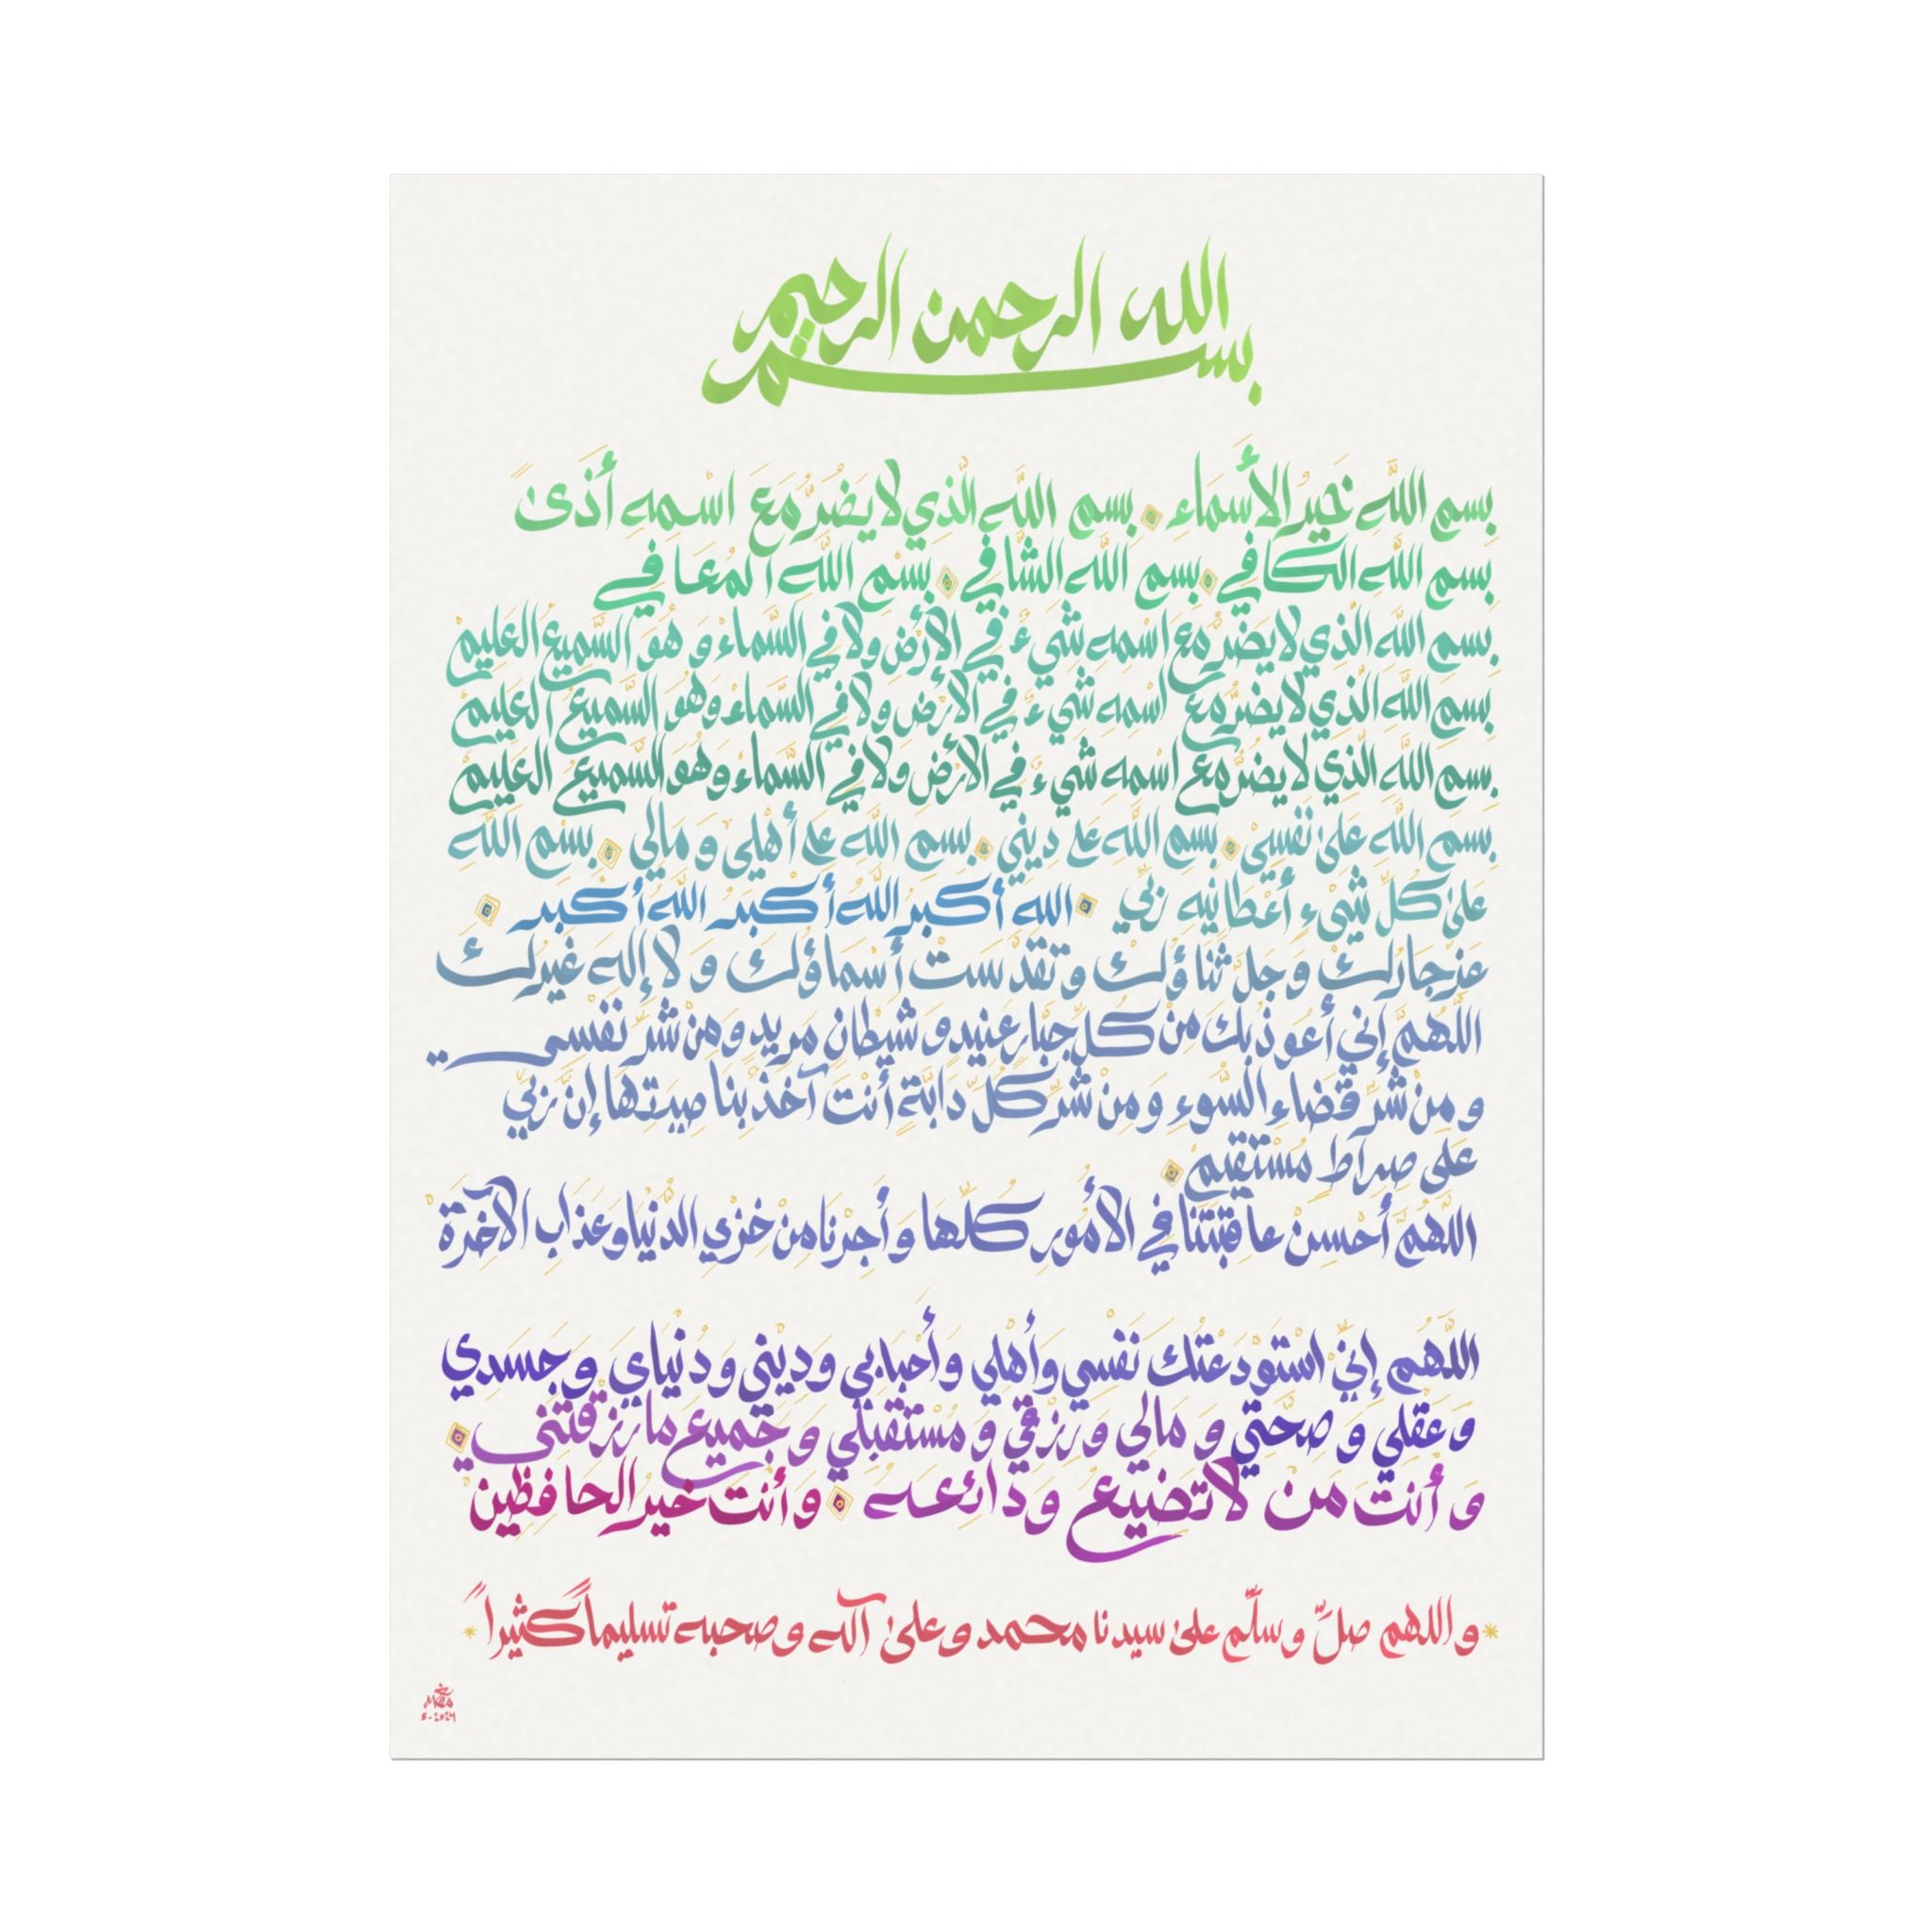 بسم الله الرحمن الرحيم
بسم اللَّه خَيرُ الأَسمَاء بسم اللَّه الَّذي لا يَضُرُّ مَعَ اسْمه أَذَىً
بسم اللَّه الكافي بسم اللَّه الشَّافي بسْم اللَّه المُعَافي
بسم اللَّه الَّذي لا يضرُّ مَعَ اسْمه شَيءٌ في الأرْض ولا في السَّماء وهُوَ السَّميعُ العَليمْ
بسم اللَّه الَّذي لا يضرُّ مَعَ اسْمه شَيءٌ في الأرْض ولا في السَّماء وهُوَ السَّميعُ العَليمْ
بسم اللَّه الَّذي لا يضرُّ مَعَ اسْمه شَيءٌ في الأرْض ولا في السَّماء وهُوَ السَّميعُ العَليمْ
بسم اللَّه عَلىٰ نَفْسي بسم اللَّه عَلى ديني بسم اللَّه عَلى أَهْلي و مَالي بسْم اللَّه
عَلىٰ كُلِّ شَيء أَعْطَانيه رَبّي الله أَكبر اللَّه أَكبر اللَّه أَكبر
عَزَّ جارُك وَجَلَّ ثَنَاؤُك وتَقَدَّسَتْ أَسماؤُك وَلا إله غَيرُك
اللَّهُمَّ إنّي أَعوذُ بكَ من كُلِّ جَبَّار عَنيد وَ شَيطان مَريد وَمنْ شَرِّ نَفْسي
ومنْ شَرِّ قَضاء السُّوء ومنْ شَرِّ كُلِّ دابَّة أَنْتَ آخذٌ بنَاصيَتهَا إنَّ رَبّي
عَلى صراط مُسْتَقيمْ
اللَّهُمَّ أَحْسنْ عاقبَتَنا في الأُمُور كُلّها وَأَجرْنا منْ خزْي الدُّنْيا وعَذَاب الآخرَةْ
اللَّهُم إنّي اسْتَودَعْتُك نَفْسي وأَهْلي وأَحْبابي وديْني ودُنْياي وَجَسَدي
وَعَقْلي وَ صحَّتي وَ مَالي وَ رزْقي وَ مُسْتَقْبَلي وَجَميع ما رَزَقْتَني
وَ أَنْتَ مَنْ لا تَضيع وَدائعه وأَنْت خَير الحافظين
واللهم صلِّ وسلّم علىٰ سيدنا محمد وعلىٰ آله وصحبه تسليماً كثيراً